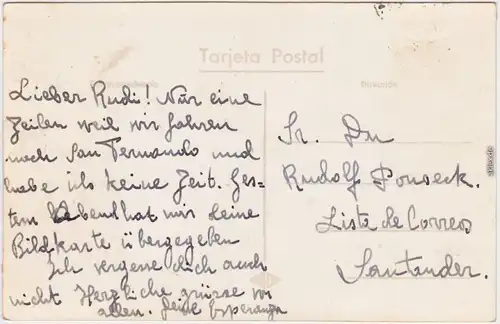 Tarjeta Postal
Lieber Rudi! Nur eine
Zeilen weil wir fahren
nach San Fernando und
habe ich keine Zeit. Ges-
tern Abend hat mir deine
Bildkarte übergegeben
Ich vergene dich auch
nicht Herzliche grüsse von
allen. Deine Esperanza
Dirección
Sr. Dn
Rudolf
Lista de Correos
Santander.